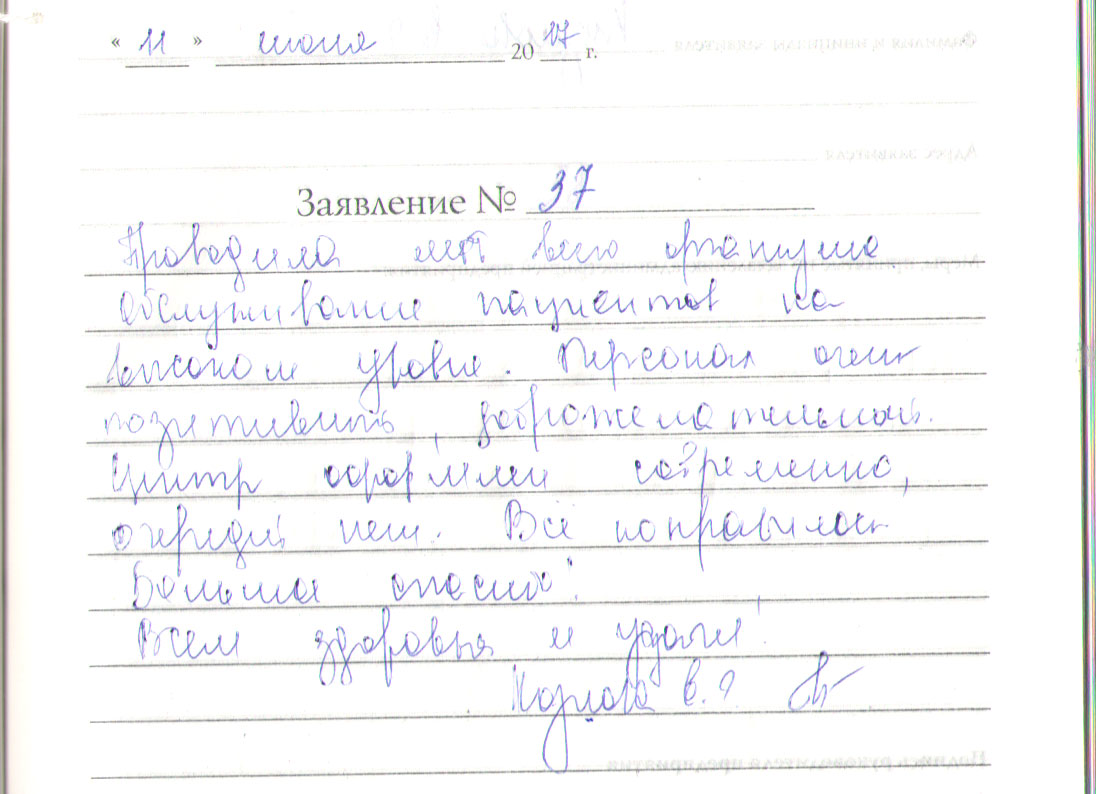 « 11 » июля 20 17 г.
Заявление № 37
Проводила мрт всего организма
Обслуживание пациентов на
высоком уровне. Персонал очень
позитивный, доброжелательный.
Центр оформлен современно,
очередей нет. Всё понравилось
Большое спасибо!
Всем здоровья и удачи!
Козлова В.